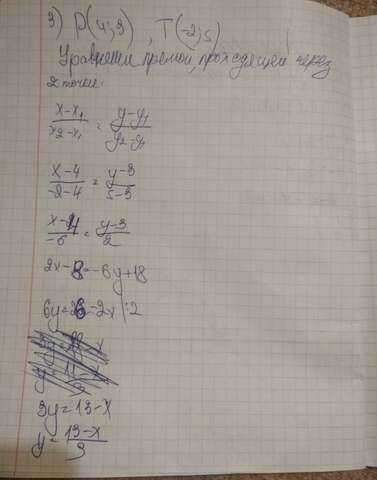 3) D(4;3) , T(-2;5)
Уравнение прямой, проходящей через
2 точки:
x-x₁/x₂-x₁ = y-y₁/y₂-y₁
x-4/-2-4 = y-3/5-3
x-4/-6 = y-3/2
2x-8=-6y+18
6y=26-2x |:2
3y=13-x
y=13-x/3